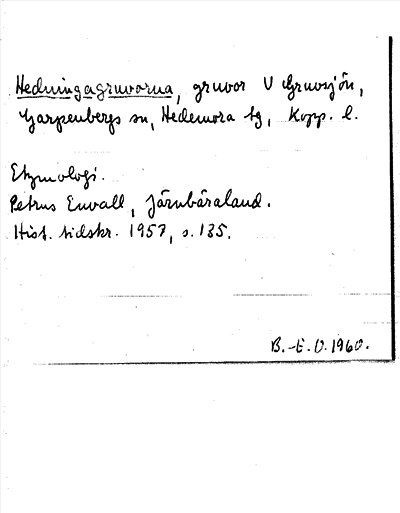 Hedningagruvorna, gruvor V Gruvsjön,
Garpenbergs sn, Hedemora tg, Kopp. l.
Etymologi.
Petrus Envall, Järnbäraland.
Hist. tidskr. 1957, s. 135.
B.-E. O. 1960.